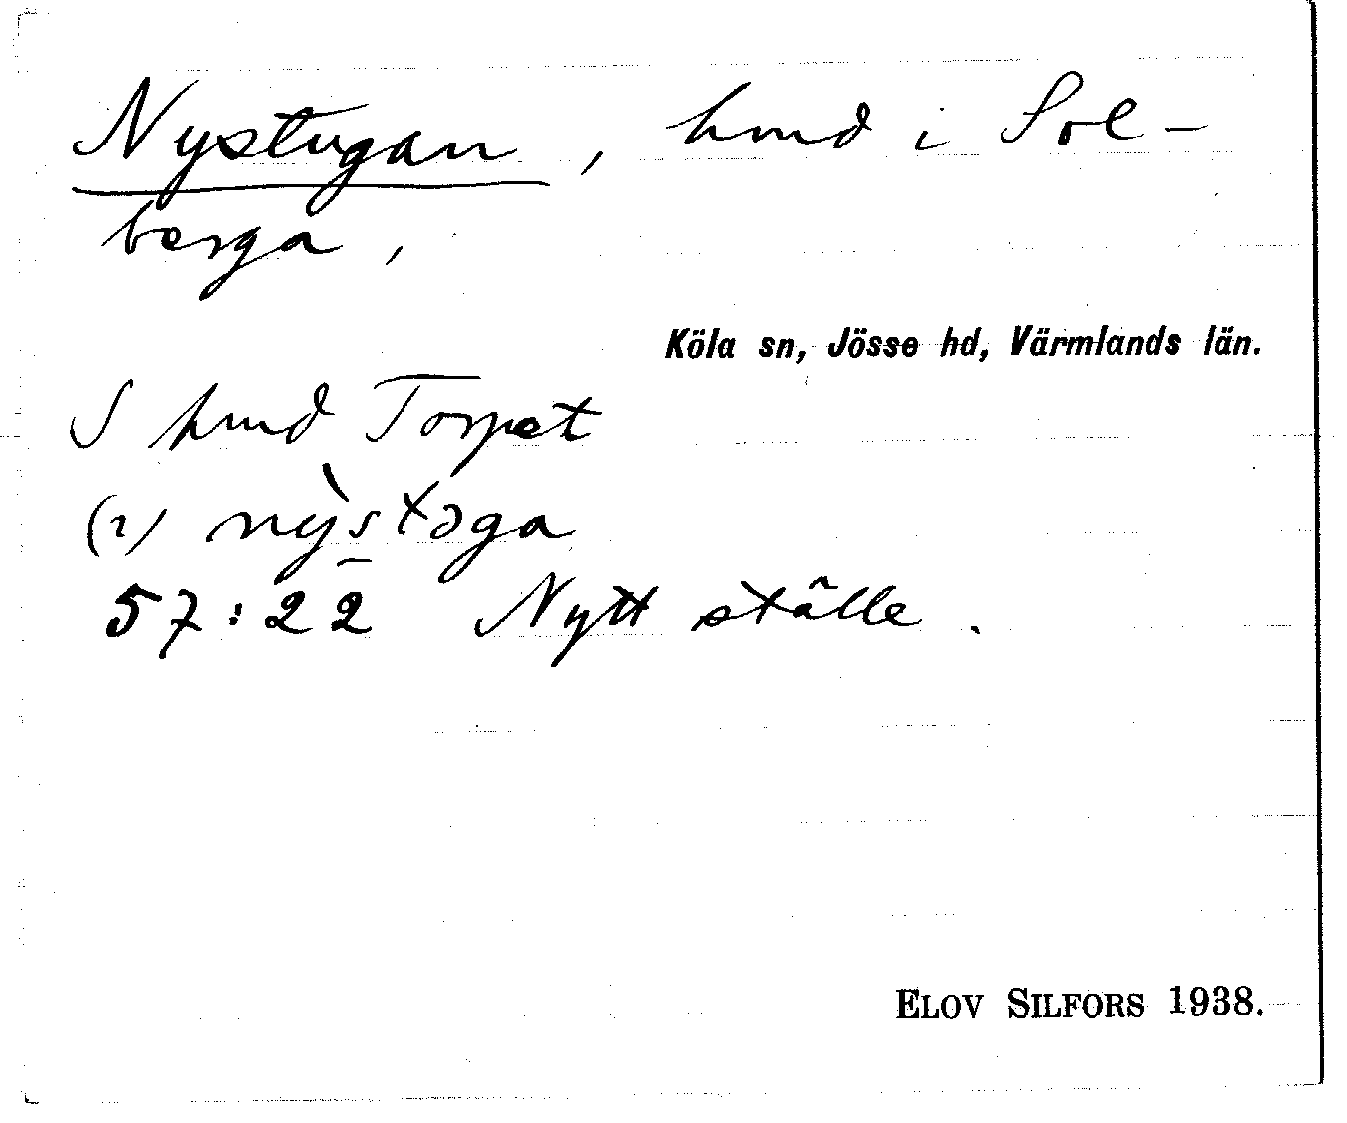 Nystugan, hmd i Sol-
berga,
Köla sn, Jösse hd, Värmlands län.
S hmd Torpet
(2) nỳstəga
57:22 Nytt ställe.
ELOV SILFORS 1938.